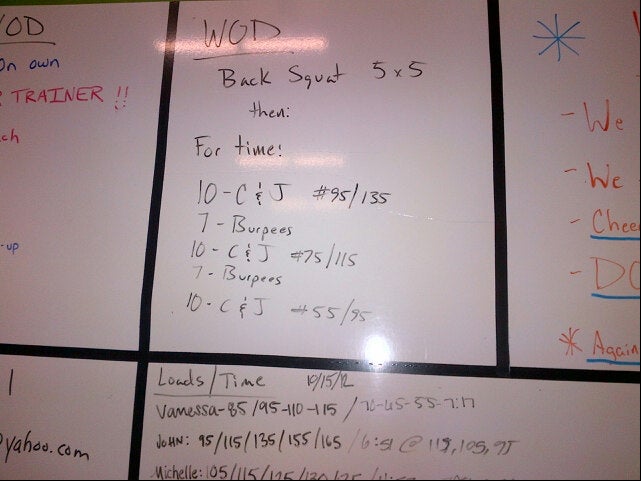 WOD
On own
TRAINER !!
WOD
Back Squat 5x5
then:
For time:
10 - C & J #95/135
7 - Burpees
10 - C & J #75/115
7 - Burpees
10 - C & J #55/95
*
- We
- We
- Chee
- DO
* Again
Loads/Time 10/15/12
Vanessa-85/95-110-115 /70-65-55-7:17
JOHN: 95/115/135/155/165 /6:51 @ 115, 105, 95
Michelle: 105/115/125/130/135
@yahoo.com